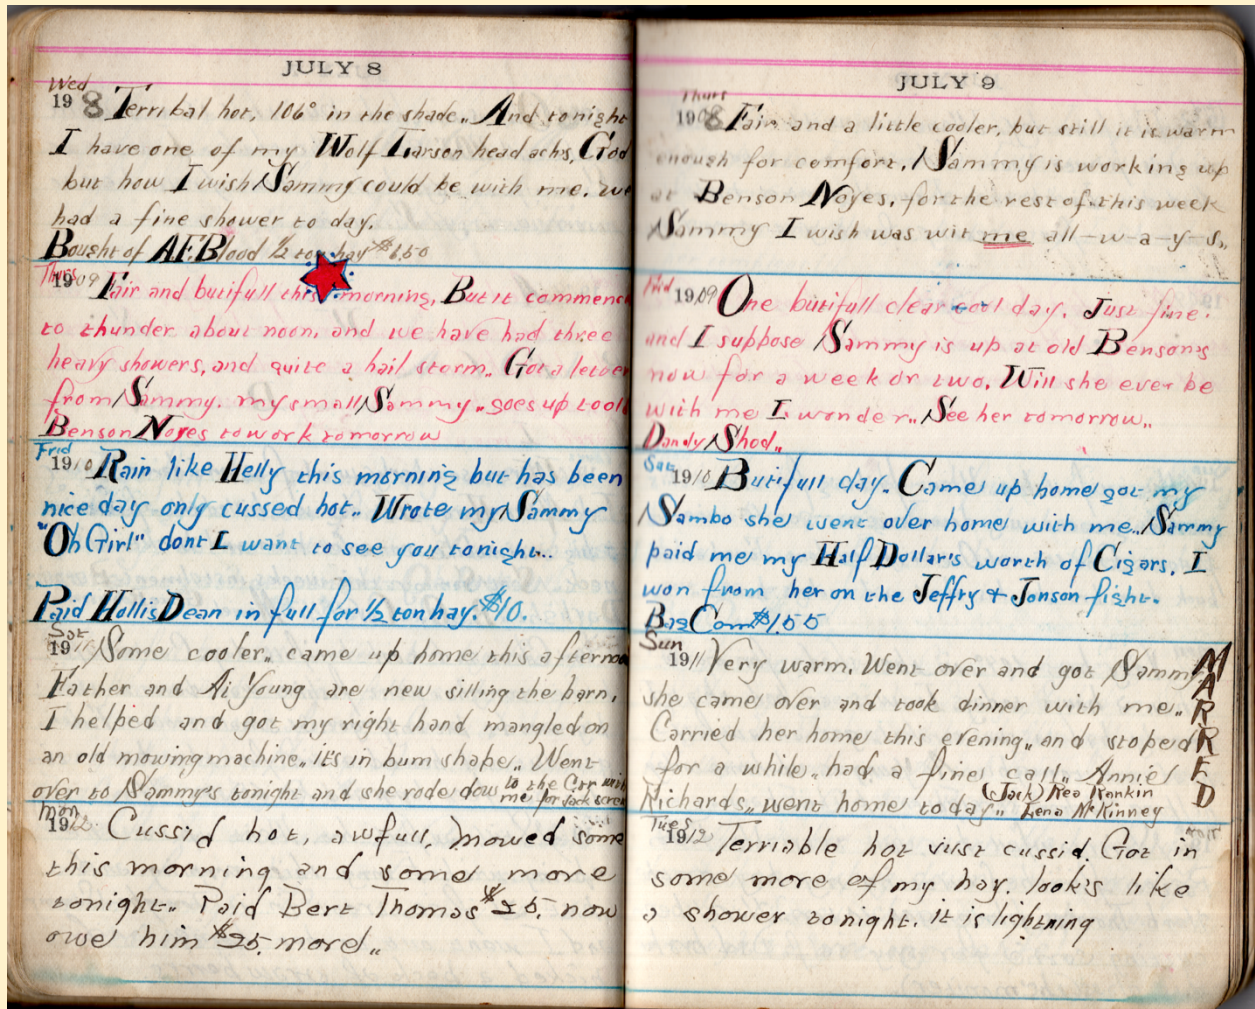 JULY 8
Wed
1908 Terribal hot, 106° in the shade.. And tonight
I have one of my Wolf Larson head achs, God
but how I wish Sammy could be with me. we
had a fine shower to day.
Bought of A.F. Blood ½ ton hay $6.50
Thurs
1909 Fair and butifull this morning, But it commenc
to thunder about noon, and we have had three
heavy showers, and quite a hail storm.. Got a letter
from Sammy. my small Sammy.. goes up to old
Benson Noyes to work tomorrow
Frid
1910 Rain like Helly this morning but has been
nice day only cussed hot.. Wrote my Sammy
"Oh Girl" dont I want to see you tonight...
Paid Hollis Dean in full for ½ ton hay. $10.
Sat
1911 Some cooler.. came up home this afternoon
Father and Ai Young are new silling the barn,
I helped and got my right hand mangled on
an old mowing machine.. it's in bum shape.. Went
over to Sammy's tonight and she rode down to the Car with
me for Jack screw
Mon
1912 Cussid hot, awfull, mowed some
this morning and some more
tonight.. Paid Bert Thomas $25. now
owe him $25. more..
JULY 9
Thurs
1908 Fair and a little cooler, but still it is warm
enough for comfort. Sammy is working up
at Benson Noyes, for the rest of this week
Sammy I wish was wit me all-w-a-y-s..
Frid
1909 One butifull clear cool day. Just fine.
and I suppose Sammy is up at old Benson's
now for a week or two. Will she ever be
with me I wonder.. See her tomorrow..
Dandy Shod..
Sat
1910 Butifull day.. Came up home got my
Sambo she went over home with me.. Sammy
paid me my Half Dollar's worth of Cigars, I
won from her on the Jeffry & Jonson fight.
Bag Corn $1.55
Sun
1911 Very warm. Went over and got Sammy
she came over and took dinner with me..
Carried her home this evening.. and stoped
for a while.. had a fine call.. Annie
Richards.. went home to day..
(Jack) Rea Rankin
Lena McKinney
MARRED
Tues
1912 Terriable hot just cussid. Got in
some more of my hay. look's like
a shower tonight. it is lightning